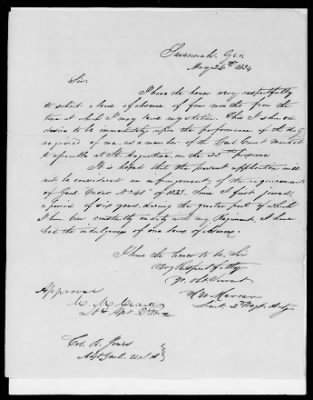 Savannah, Geo.
May 26th 1834
Sir.
I have the honor very respectfully
to solicit a leave of absence of four months from the
time at which I may leave
desire to be immediately upon the performance of the duty
required of me, as a member of the Genl. Court Martial
to assemble at St. Augustine, on the
It is hoped that the present application will
not be considered an infringement of the requirements
of Genl. Order No. 48 of 1832. Since I first joined
a period of six years, during the greater part of which
I have been constantly on duty with my Regiment, I have
had the indulgence of one leave of absence.
I have the honor to be, Sir
Very Respectfully
Yr. Obt. Servt
Approved
H W Mercer
Lieut. 2d Regt. Arty.
Col. R. Jones
Adjt. Genl. U.S.A.